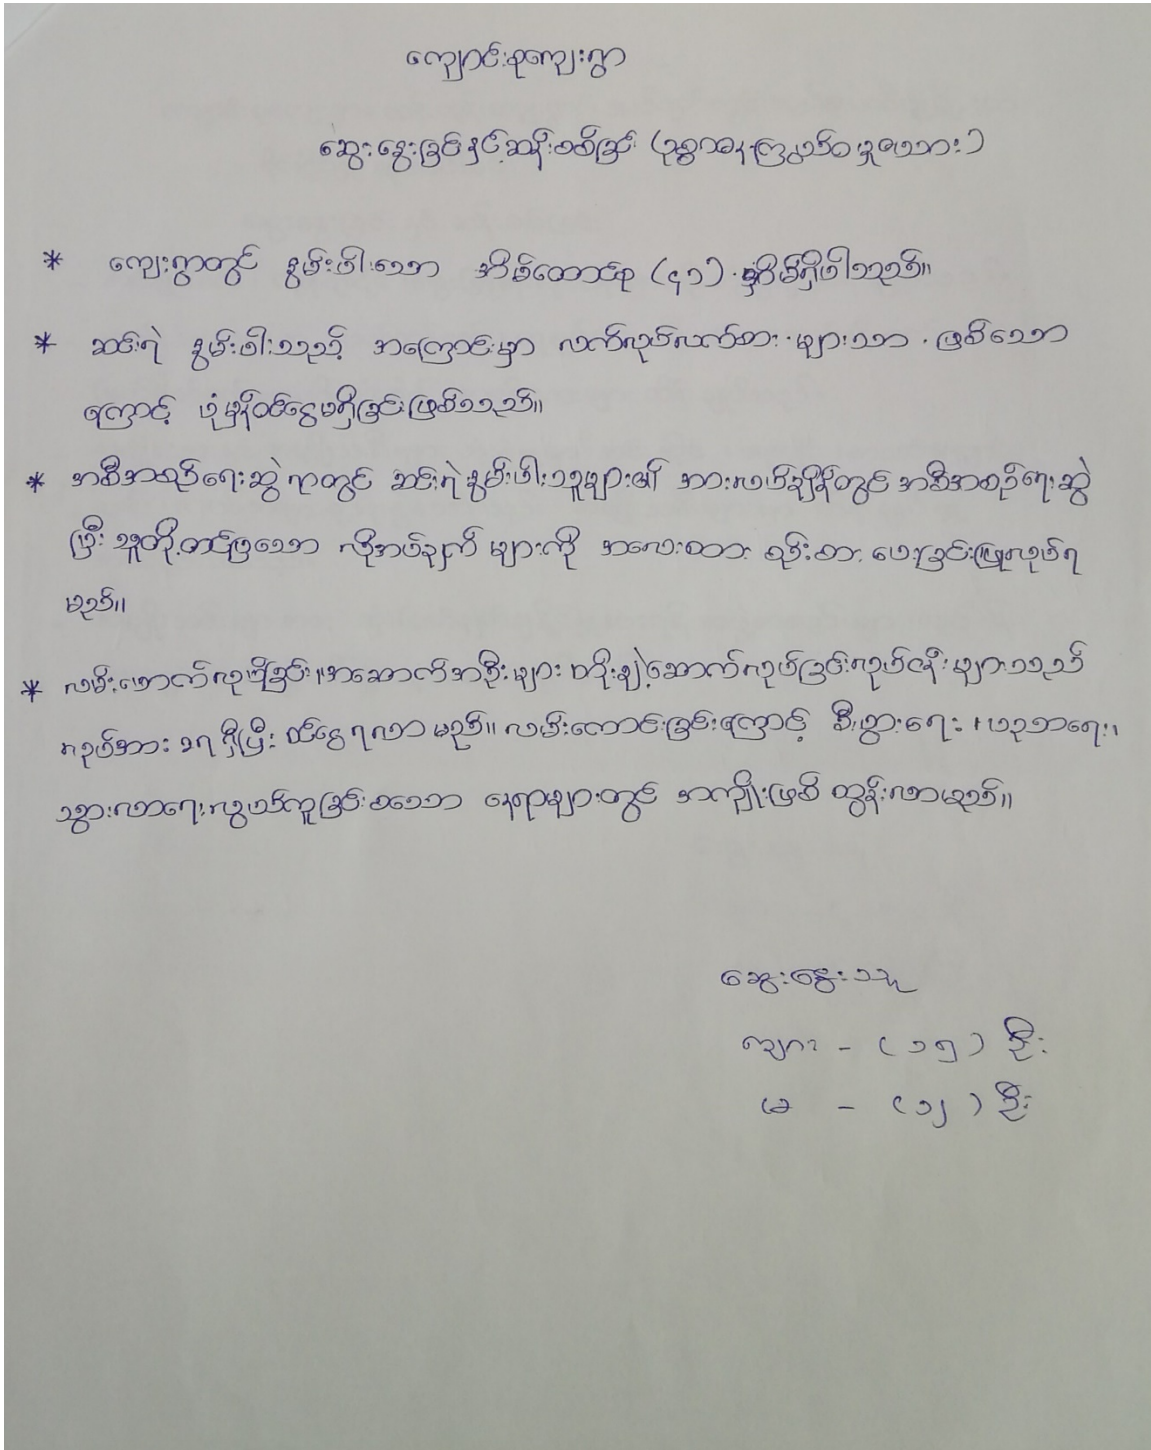 ကျောင်းစုကျေးရွာ
ဆွေးနွေးခြင်းနှင့်ဆန်းစစ်ခြင်း (ဥစ္စာဓနကြွယ်ဝမှုဇယား)
* ကျေးရွာတွင် နွမ်းပါးသော အိမ်ထောင်စု (၄၁) ရှိပါသည်။
* ဆင်းရဲ နွမ်းပါးသည့် အကြောင်းမှာ လက်လုပ်လက်စား များသာ ဖြစ်သော
ကြောင့် ပုံမှန်ဝင်ငွေမရှိခြင်းဖြစ်သည်။
* အစီအစဉ်ရေးဆွဲ ရာတွင် ဆင်းရဲနွမ်းပါးသူများ၏ အားလပ်ချိန်တွင် အစီအစဉ်ရေးဆွဲ
ပြီး သူတို့တင်ပြသော လိုအပ်ချက် များကို အလေးထား စဉ်းစား ပေးခြင်းပြုလုပ်ရ
မည်။
* လမ်းဖောက်လုပ်ခြင်း၊ အဆောက်အဦးများ တိုးချဲ့ဆောက်လုပ်ခြင်းလုပ်ငန်းများသည်
လုပ်အား ခရရှိပြီး ဝင်ငွေရလာမည်။ လမ်းကောင်းခြင်းကြောင့် စီးပွားရေး၊ ပညာရေး၊
သွားလာရေးလွယ်ကူခြင်းစသော နေရာများတွင် အကျိုးဖြစ် ထွန်းလာမည်။
ဆွေးနွေးသူ
ကျား - (၁၅) ဦး
မ - (၁၂) ဦး